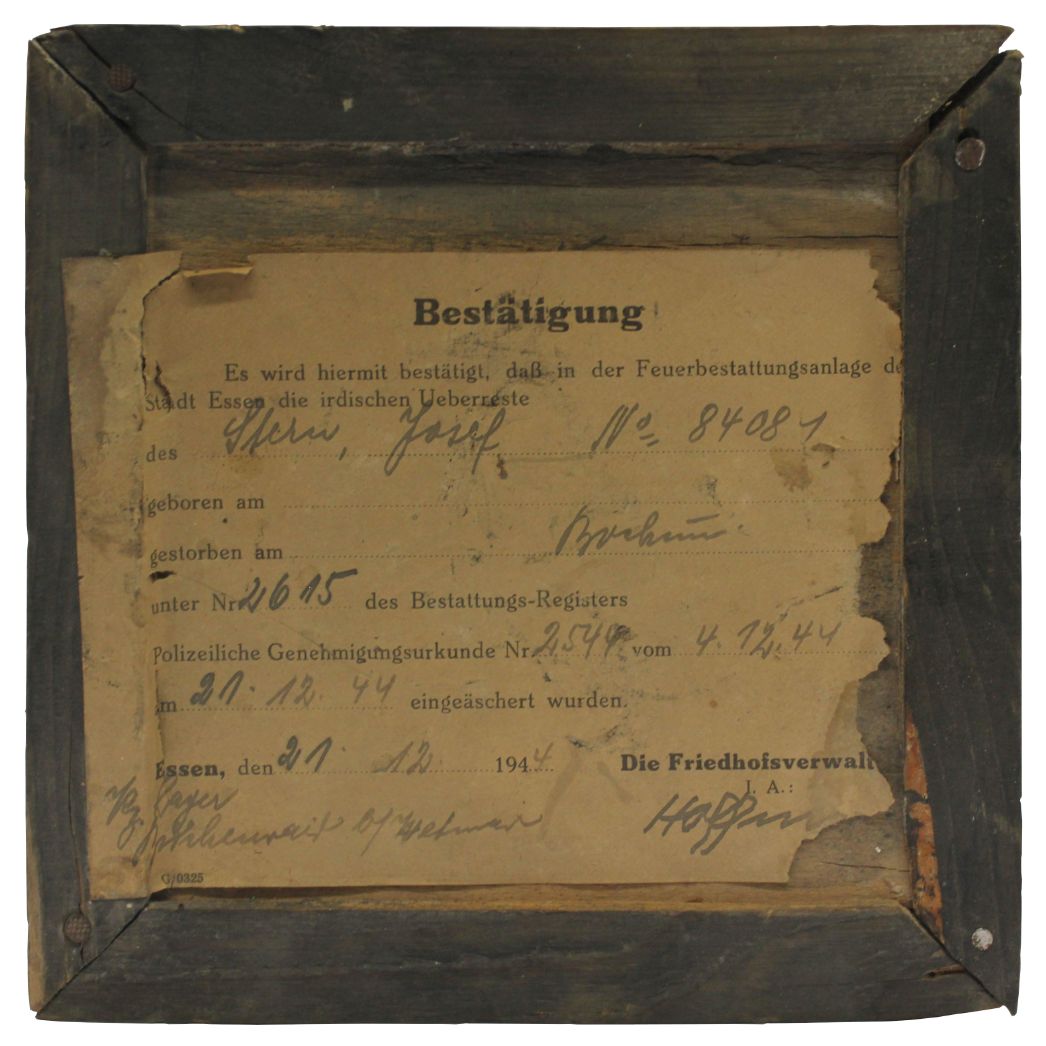 Bestätigung
Es wird hiermit bestätigt, daß in der Feuerbestattungsanlage de
Stadt Essen die irdischen Ueberreste
des Stern, Josef No 84081
geboren am
gestorben am Bochum
unter Nr. 2615 des Bestattungs-Registers
Polizeiliche Genehmigungsurkunde Nr. 2544 vom 4.12.44
am 21.12.44 eingeäschert wurden.
Essen, den 21. 12. 1944. Die Friedhofsverwalt
I. A.:
lager Hoffm
Buchenwald b/Weimar
G/0325